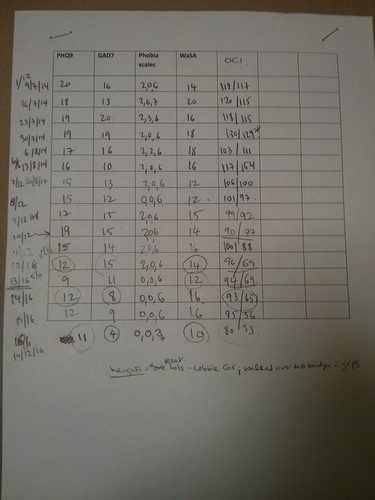 PHQ9 GAD7 Phobia scales WaSA OCI
9/7/14 20 16 2,0,6 14 118/117
16/7/14 18 13 2,6,7 20 120/115
23/7/14 19 20 2,3,6 16 118/115
30/7/14 19 19 2,0,6 18 130/129*
6/8/14 17 16 2,2,6 18 103/111
13/8/14 16 10 2,0,6 16 117/154
20/8/14 15 13 2,0,6 12 106/100
15 12 0,0,6 12 101/97
17 15 2,0,6 15 99/92
10/12 19 15 206 14 90/77
15 14 2,0,6 100/88
12 15 2,0,6 14 96/69
13/16 9 11 0,0,6 12 94/69
14/16 12 8 0,0,6 16 93/65
15/16 12 9 0,0,6 16 95/56
10/12/16 11 4 0,0,3 10 80/53
heights - hols - cable car, walked over